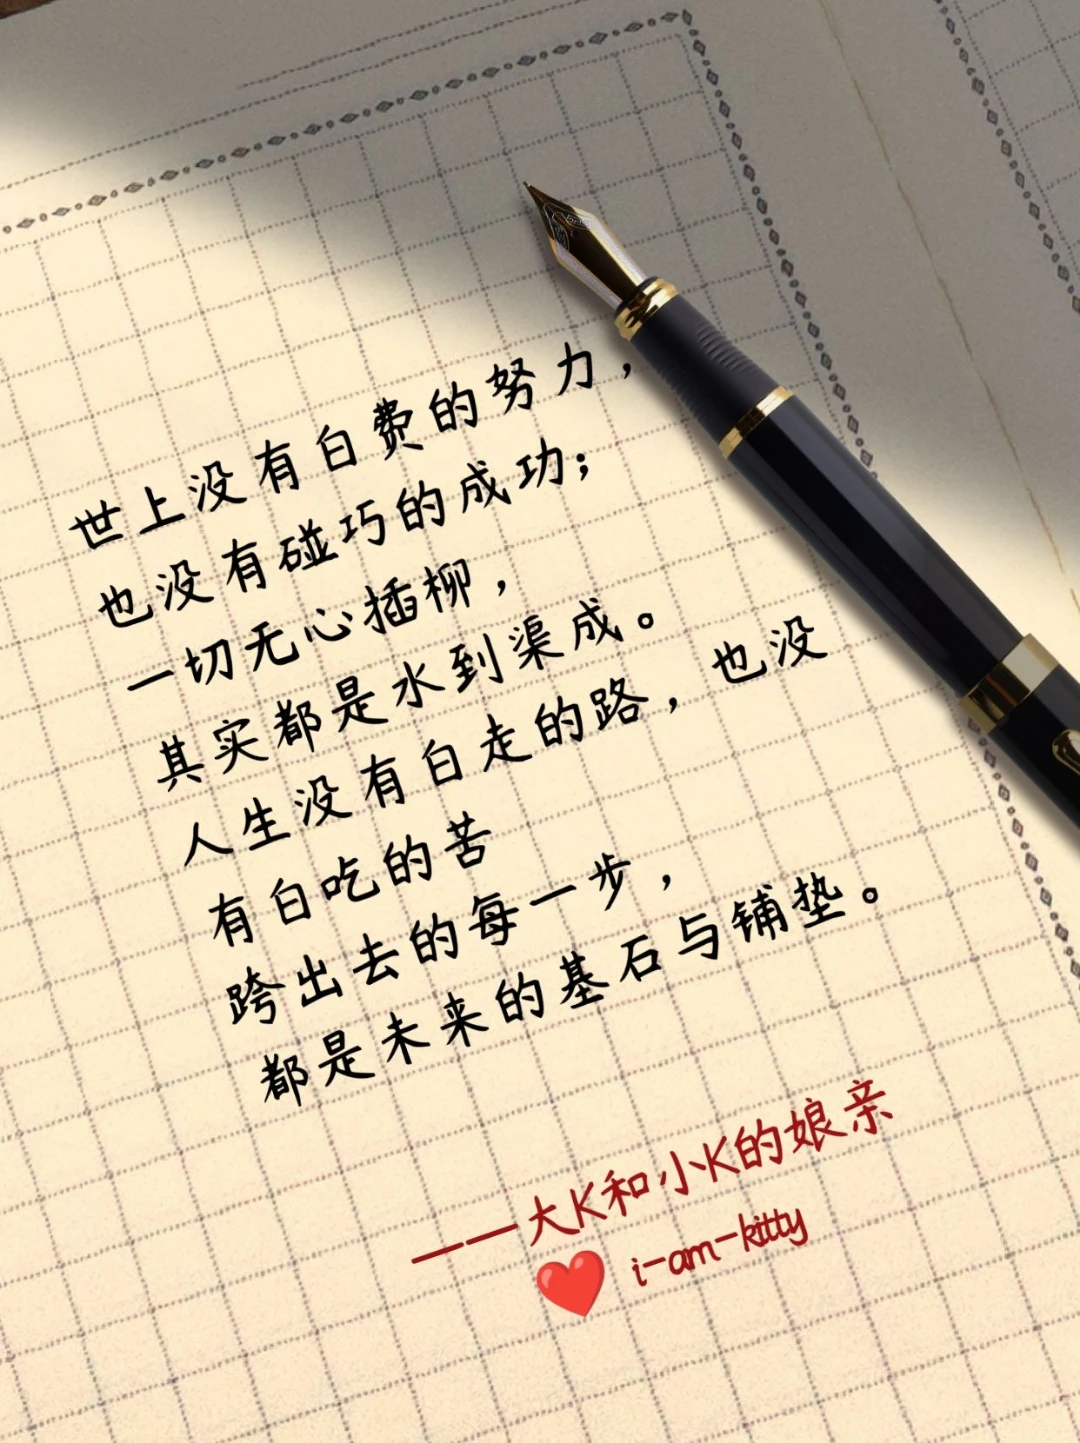 世上没有白费的努力，
也没有碰巧的成功；
一切无心插柳，
其实都是水到渠成。
人生没有白走的路，也没
有白吃的苦
跨出去的每一步，
都是未来的基石与铺垫。
——大K和小K的娘亲
❤️ i-am-kitty